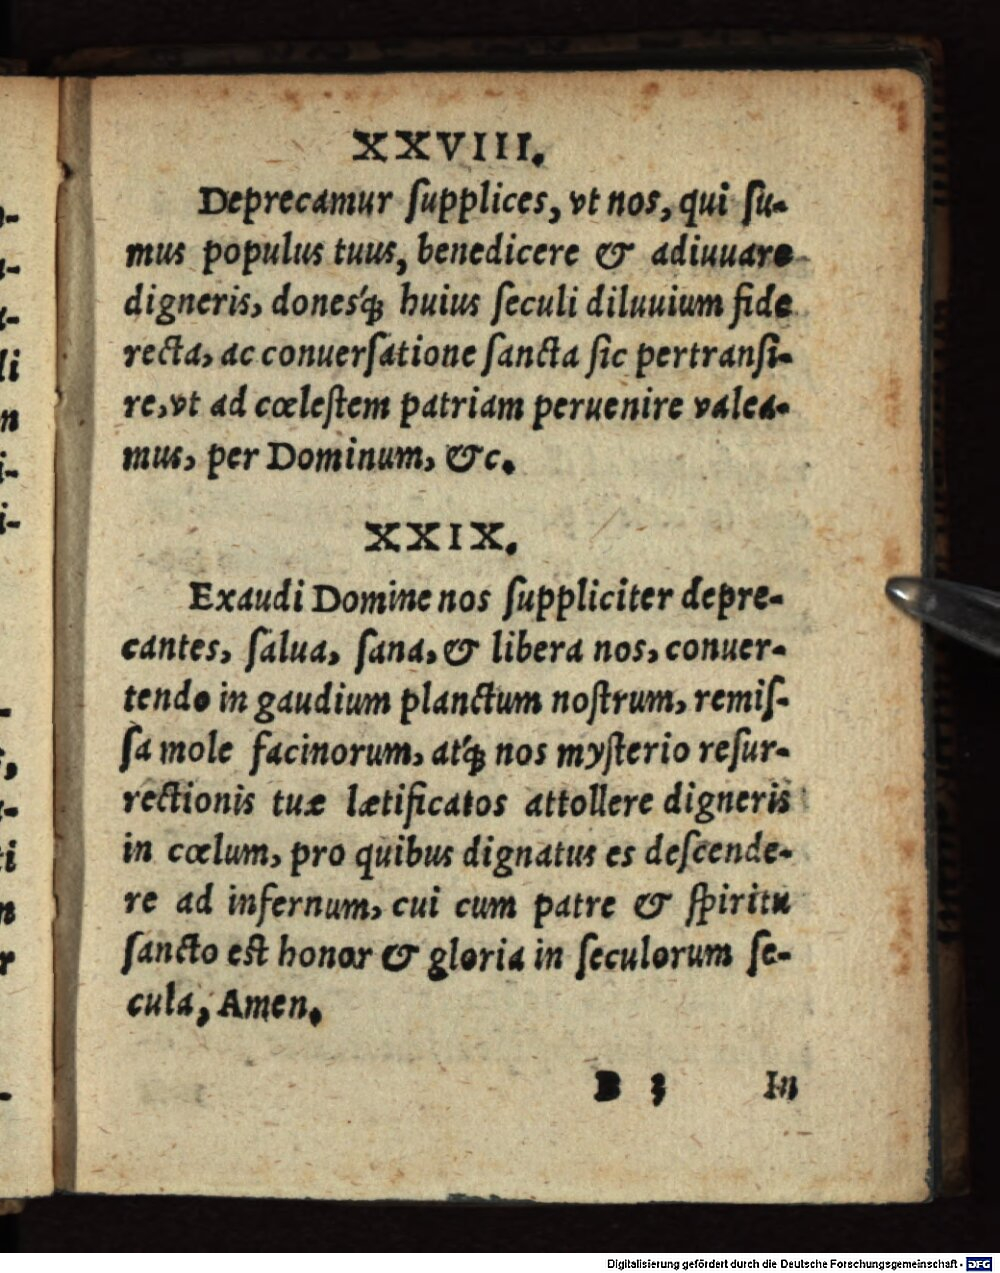 XXVIII.
Deprecamur ſupplices, vt nos, qui ſu-
mus populus tuus, benedicere & adiuuare
digneris, donesq́; huius ſeculi diluuium fide
recta, ac conuerſatione ſancta ſic pertranſi-
re, vt ad cœleſtem patriam peruenire valea-
mus, per Dominum, &c.
XXIX.
Exaudi Domine nos ſuppliciter depre-
cantes, ſalua, ſana, & libera nos, conuer-
tendo in gaudium planctum noſtrum, remiſ-
ſa mole facinorum, atq́; nos myſterio reſur-
rectionis tuæ lætificatos attollere digneris
in cœlum, pro quibus dignatus es deſcende-
re ad infernum, cui cum patre & ſpiritu
ſancto eſt honor & gloria in ſeculorum ſe-
cula, Amen.
B 3 In
Digitalisierung gefördert durch die Deutsche Forschungsgemeinschaft - DFG